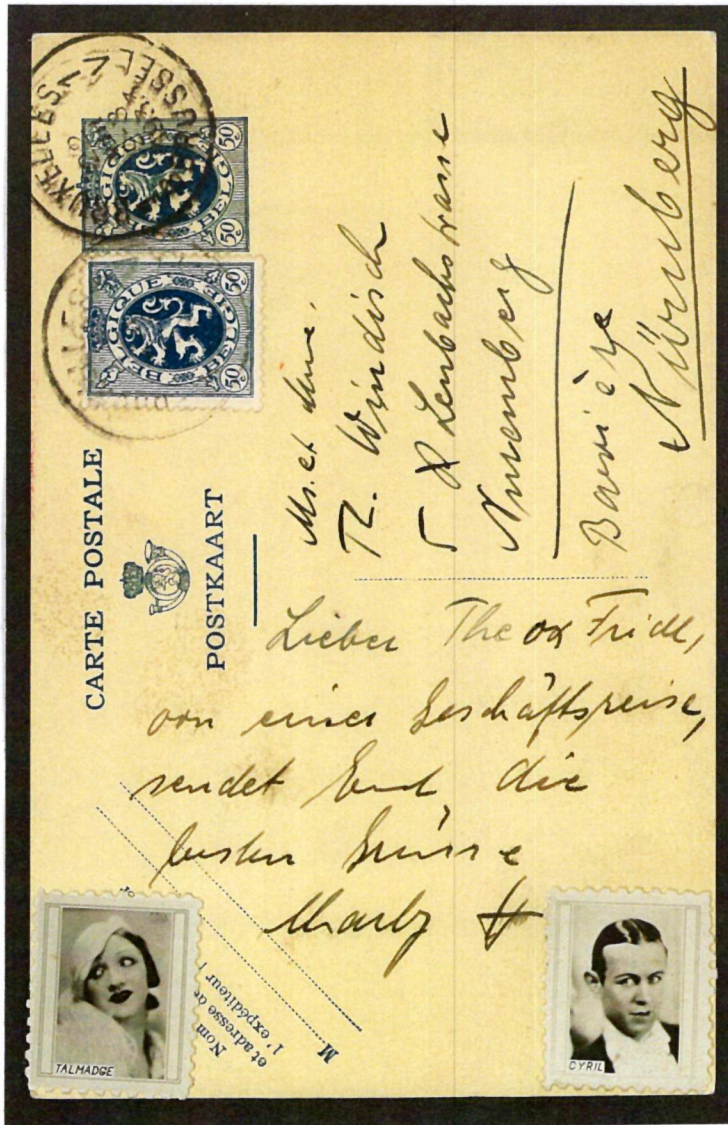 BRUXELLES
BRUSSEL
BELGIQUE BELGIE
50c 50c
BELGIQUE BELGIE
50c 50c
CARTE POSTALE
POSTKAART
Mr. et Mme.
Th. Windisch
5 Lenbachstrasse
Nuremberg
Bavière
Nürnberg
Lieber Theo & Friedl,
von einer Geschäftsreise,
sendet Euch die
besten Grüsse
Charly
Nom
et adresse de
l'expéditeur
M
TALMADGE
CYRIL